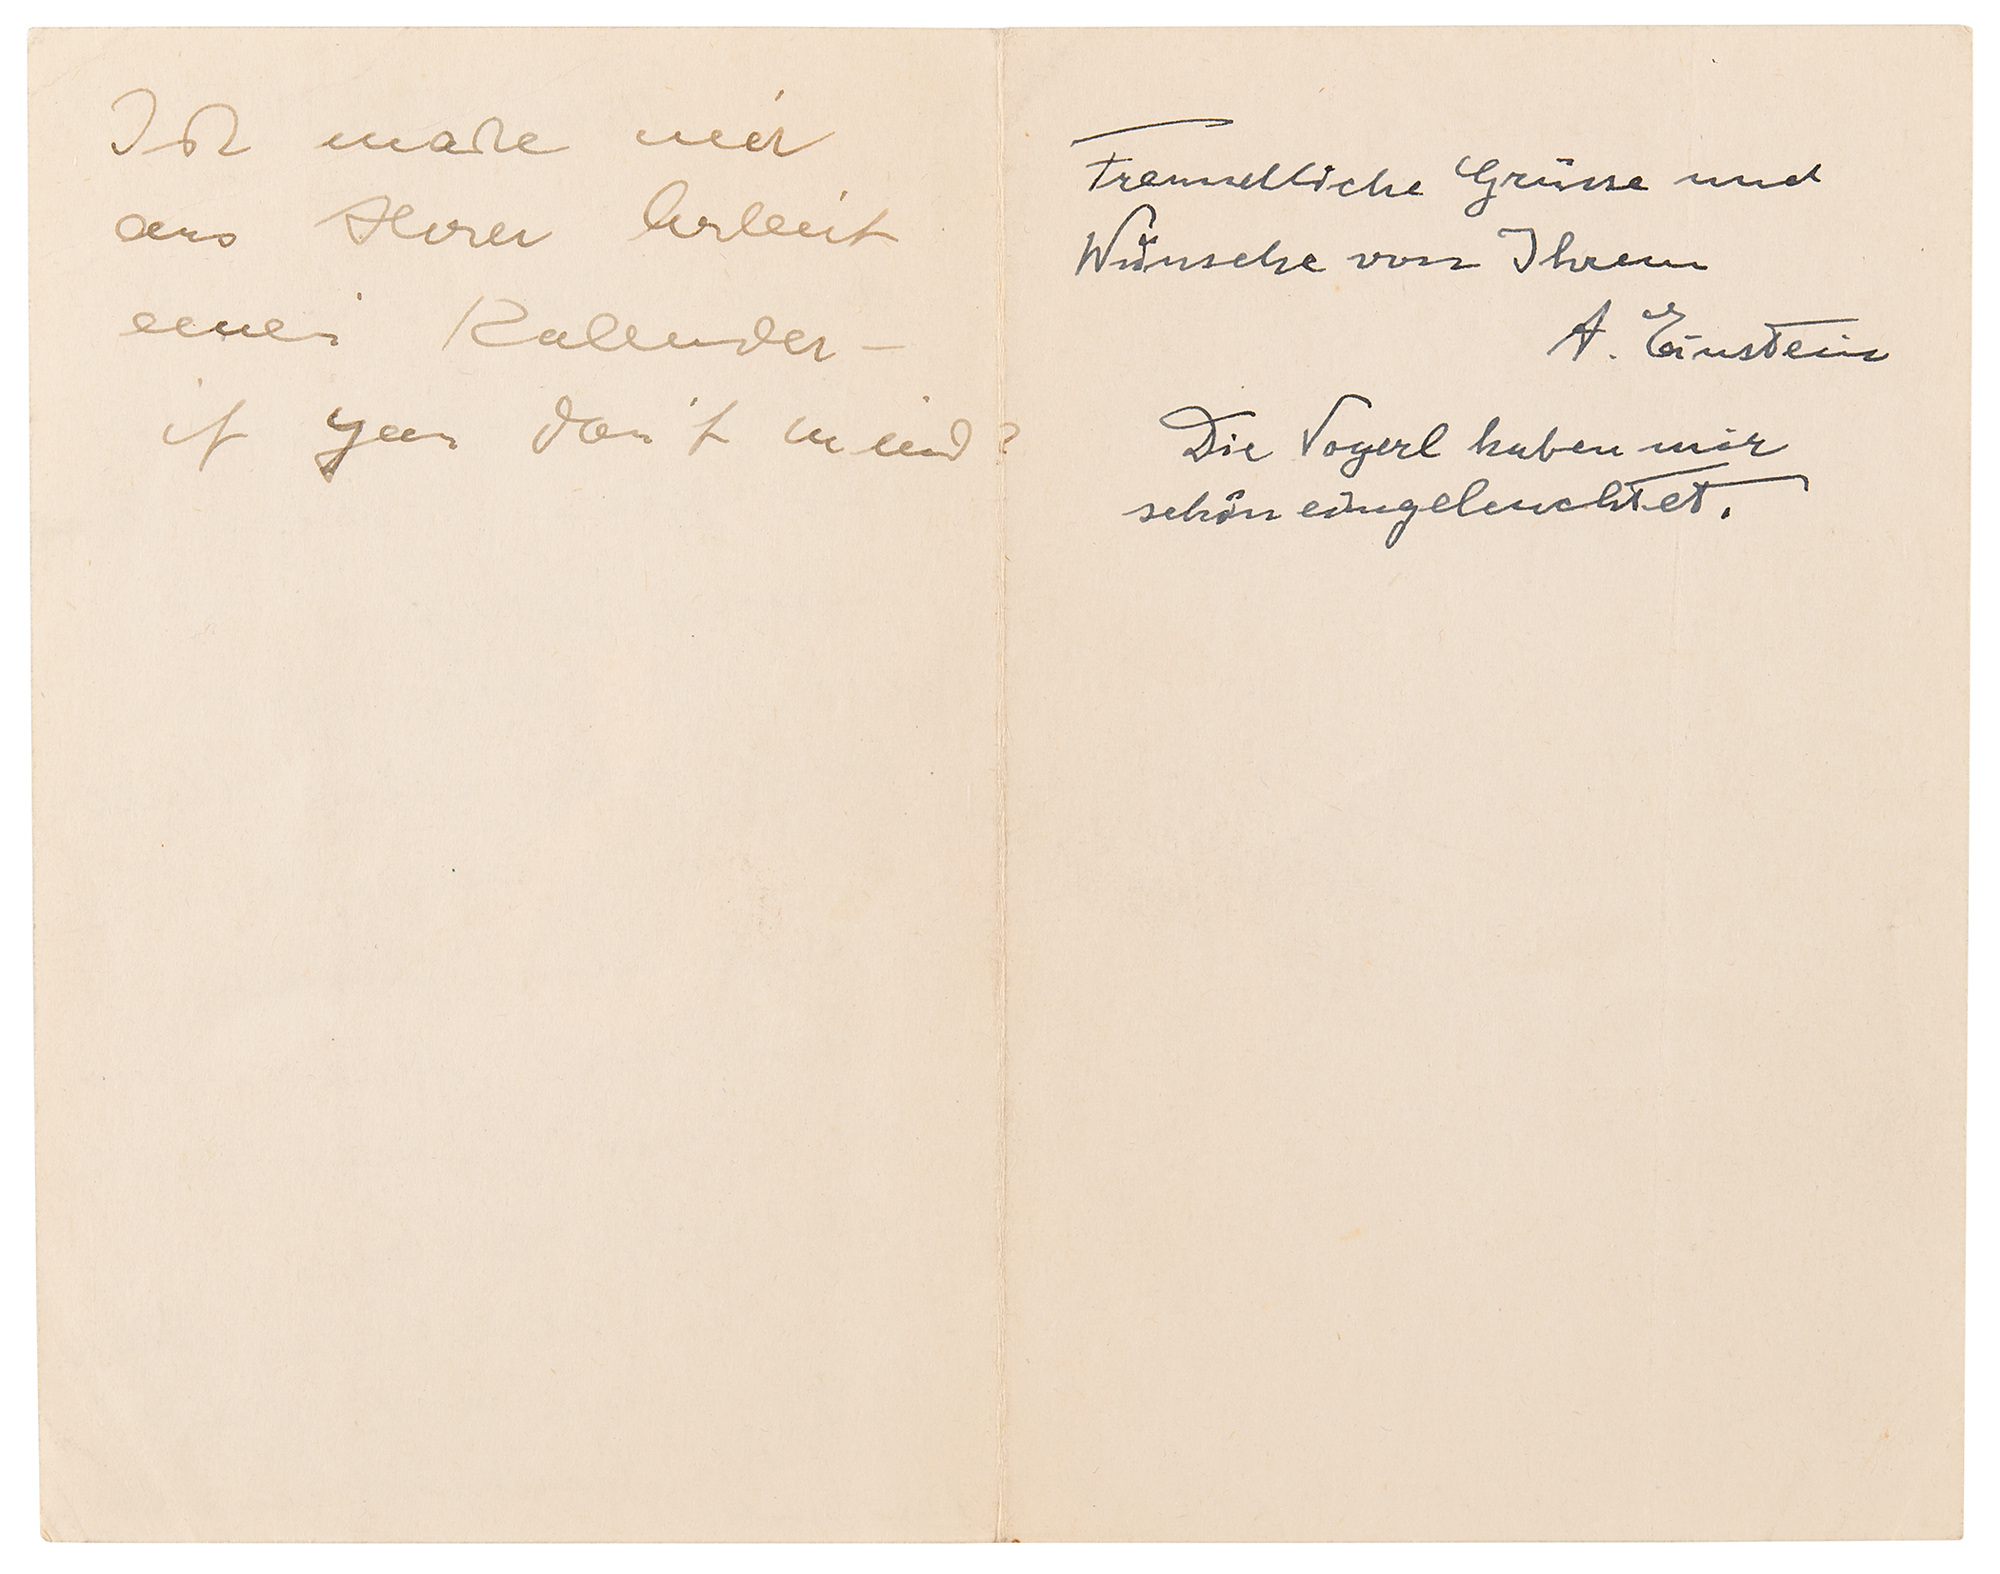 Ich mache mir
aus Ihrer Arbeit
einen Kalender –
if you don't mind?
Freundliche Grüsse und
Wünsche von Ihrem
A. Einstein
Die Vogerl haben mir
schön eingeleuchtet.